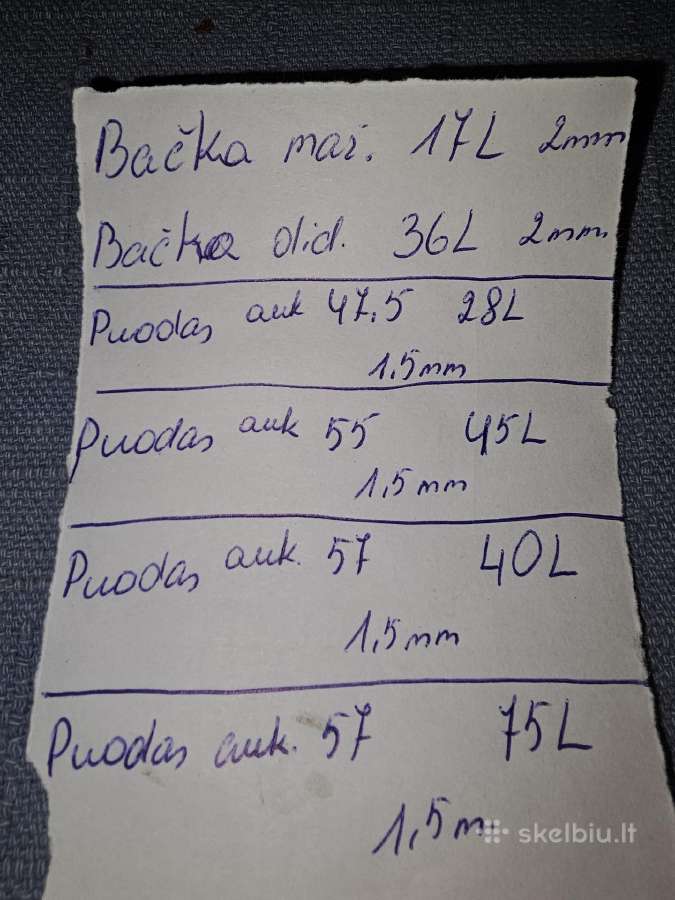 Bačka maž. 17L 2mm
Bačka did. 36L 2mm
Puodas auk 47,5 28L
1.5mm
Puodas auk 55 45L
1,5mm
Puodas auk. 57 40L
1,5mm
Puodas auk. 57 75L
1,5m
skelbiu.lt